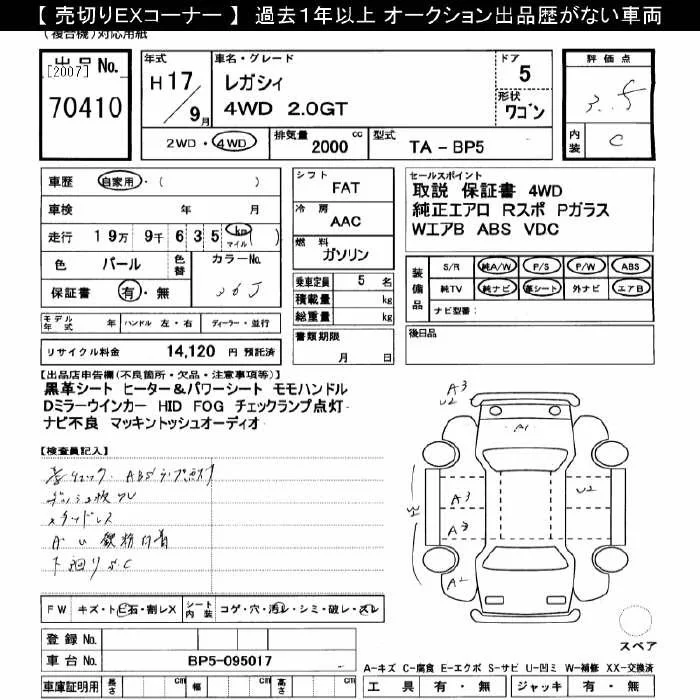 【 売切りEXコーナー 】 過去1年以上 オークション出品歴がない車両
(複合機)対応用紙
出品 No.
[2007]
70410
年式
H17/9月
車名・グレード
レガシィ
4WD 2.0GT
ドア 5
形状 ワゴン
評価点
3.5
内装 C
2WD・4WD
排気量 2000 cc
型式 TA-BP5
車歴 自家用・( )
車検 年 月
走行 19万 9千 6 3 5 km マイル ( )
色 パール
色替
カラーNo.
36J
保証書 有・無
モデル年式 年
ハンドル 左・右
ディーラー・並行
リサイクル料金 14,120 円 預託済
シフト FAT
冷房 AAC
燃料 ガソリン
乗車定員 5 名
積載量 kg
総重量 kg
書類期限
月 日
セールスポイント
取説 保証書 4WD
純正エアロ Rスポ Pガラス
WエアB ABS VDC
装備品
S/R 純A/W P/S P/W ABS
純TV 純ナビ 革シート 外ナビ エアB
ナビ型番:
後日品
【出品店申告欄(不良箇所・欠品・注意事項等)】
黒革シート ヒーター&パワーシート モモハンドル
Dミラーウインカー HID FOG チェックランプ点灯
ナビ不良 マッキントッシュオーディオ
【検査員記入】
ABSランプ点灯
スタッドレス
A U 鉄粉付着
下廻りSC
A3
U2
A1
A3
A3
U2
A2
FW キズ・トビ石・割レX
シート内装 コゲ・穴・汚レ・シミ・破レ・スレ
登録 No.
車台 No. BP5-095017
車庫証明用 長さ cm 幅 cm 高さ cm
スペア
A-キズ C-腐食 E-エクボ S-サビ U-凹ミ W-補修 XX-交換済
工具 有・無 ジャッキ 有・無